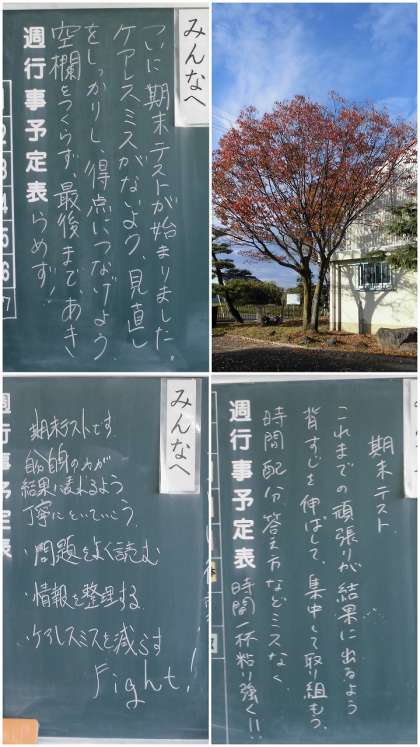 みんなへ
ついに期末テストが始まりました。
ケアレスミスがないよう、見直し
をしっかりし、得点につなげよう。
空欄をつくらず、最後まであき
らめず!
週行事予定表
1
2
3
4
5
6
7
みんなへ
期末テストです。
自分自身の力が
結果に表れるよう
丁寧にといていこう。
・問題をよく読む
・情報を整理する
・ケアレスミスを減らす
Fight!
行事予定表
期末テスト
これまでの頑張りが結果に出るよう
背すじを伸ばして、集中して取り組もう。
時間配分、答え方などミスなく、
時間一杯粘り強く!!
週行事予定表